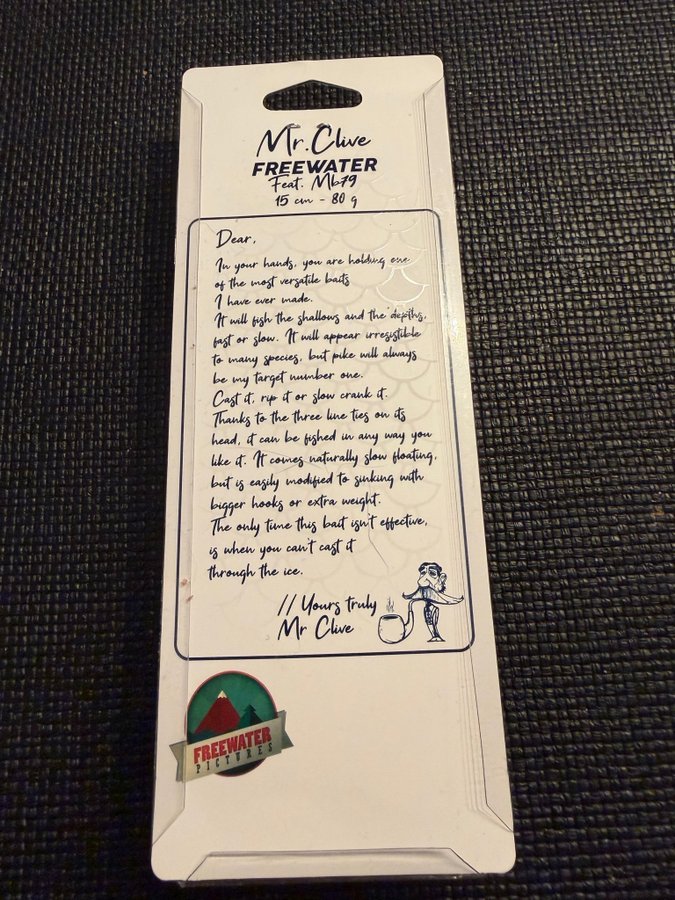 Mr. Clive
FREEWATER
Feat. Mb79
15 cm - 80 g
Dear,
In your hands, you are holding one
of the most versatile baits
I have ever made.
It will fish the shallows and the depths,
fast or slow. It will appear irresistible
to many species, but pike will always
be my target number one.
Cast it, rip it or slow crank it.
Thanks to the three line ties on its
head, it can be fished in any way you
like it. It comes naturally slow floating,
but is easily modified to sinking with
bigger hooks or extra weight.
The only time this bait isn't effective,
is when you can't cast it
through the ice.
// Yours truly
Mr Clive
FREEWATER
PICTURES